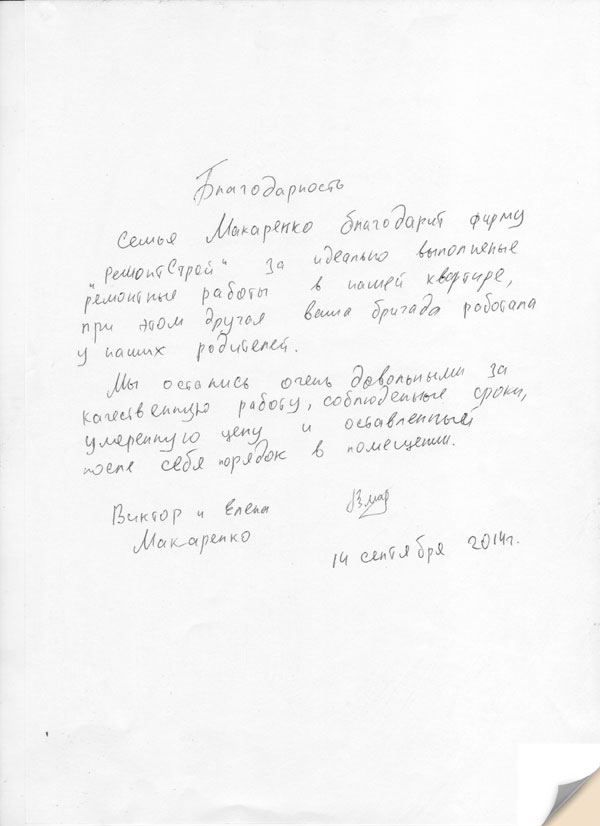 Благодарность
Семья Макаренко благодарит фирму
„РемонтСтрой“ за идеально выполненые
ремонтные работы в нашей квартире,
при этом другая ваша бригада работала
у наших родителей.
Мы остались очень довольными за
качественную работу, соблюденные сроки,
умеренную цену и оставленный
после себя порядок в помещении.
Виктор и Елена
Макаренко
14 сентября 2014г.